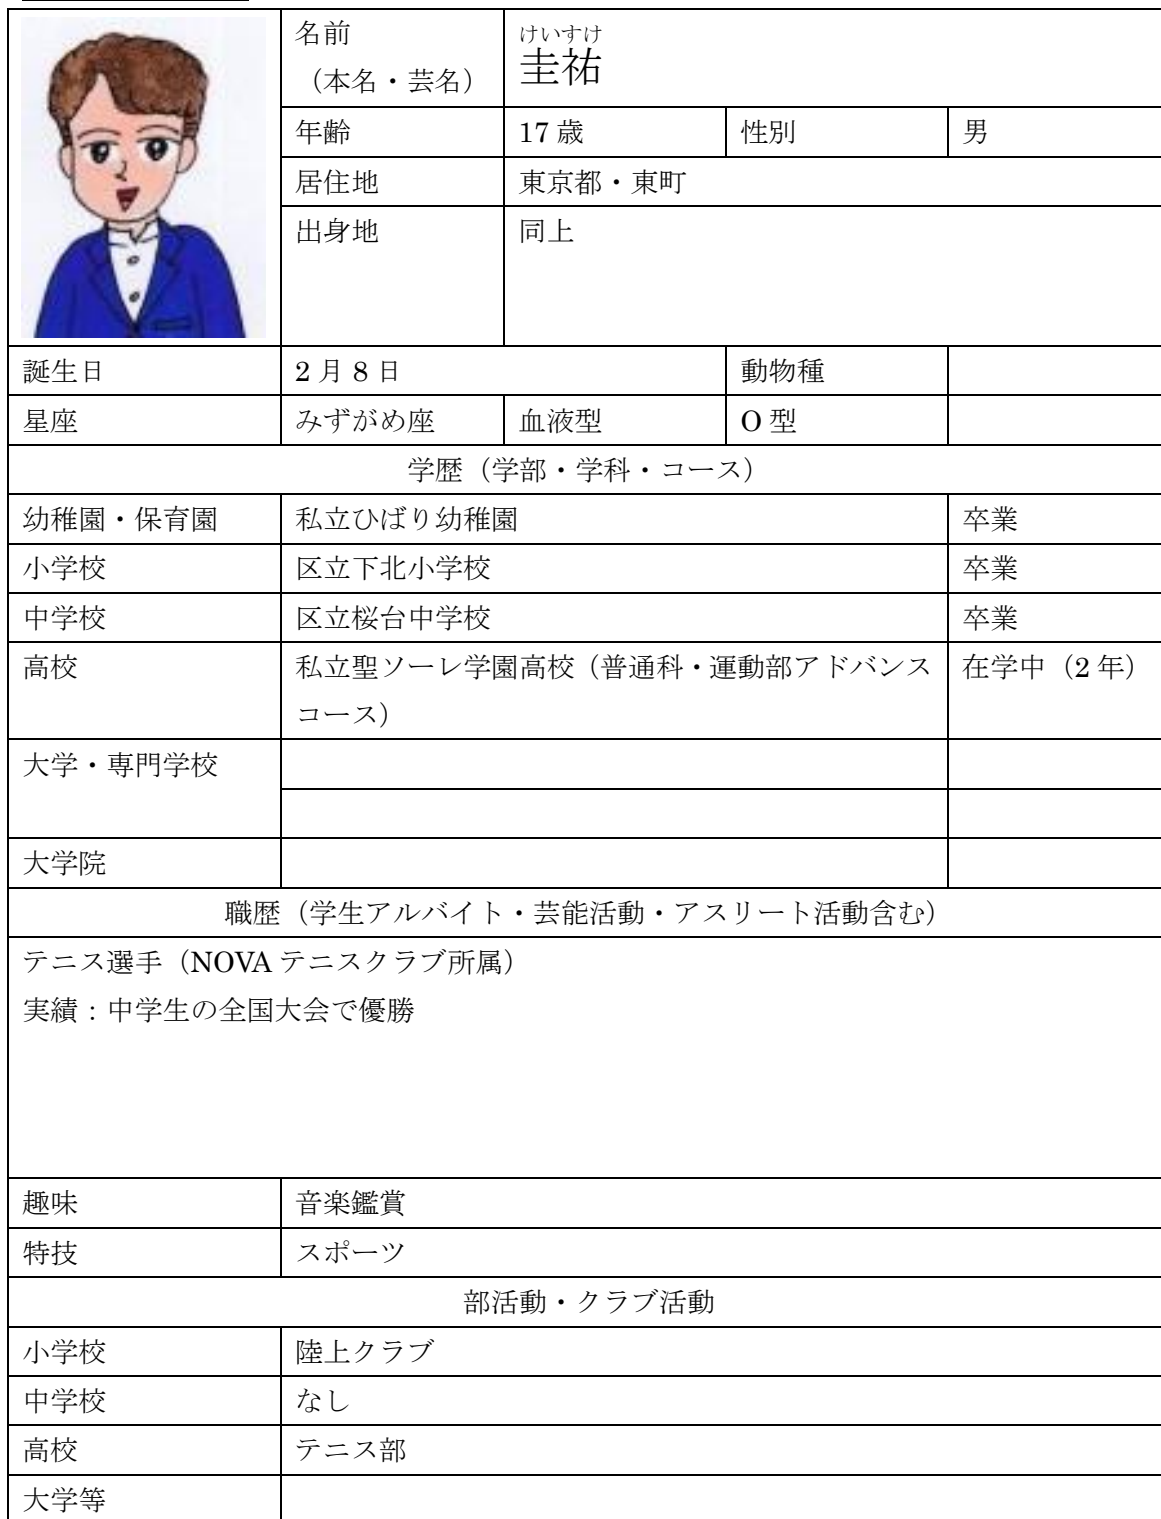 名前
（本名・芸名）
けいすけ
圭祐
年齢 17 歳 性別 男
居住地 東京都・東町
出身地 同上
誕生日 2 月 8 日 動物種
星座 みずがめ座 血液型 O 型
学歴（学部・学科・コース）
幼稚園・保育園 私立ひばり幼稚園 卒業
小学校 区立下北小学校 卒業
中学校 区立桜台中学校 卒業
高校 私立聖ソーレ学園高校（普通科・運動部アドバンス 在学中（2 年）
コース）
大学・専門学校
大学院
職歴（学生アルバイト・芸能活動・アスリート活動含む）
テニス選手（NOVA テニスクラブ所属）
実績：中学生の全国大会で優勝
趣味 音楽鑑賞
特技 スポーツ
部活動・クラブ活動
小学校 陸上クラブ
中学校 なし
高校 テニス部
大学等